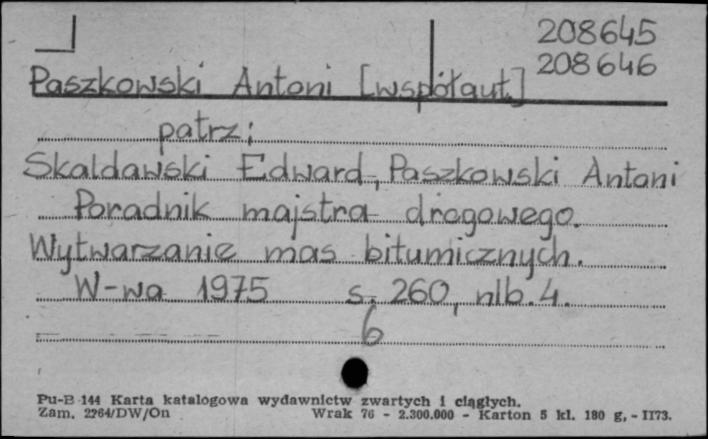 208645
208646
Paszkowski Antoni [współaut.]
patrz:
Skaldawski Edward, Paszkowski Antoni
Poradnik majstra drogowego.
Wytwarzanie mas bitumicznych.
W-wa 1975 s. 260, nlb. 4.
6
Pu-B 144 Karta katalogowa wydawnictw zwartych i ciągłych.
Zam. 2264/DW/On Wrak 76 - 2.300.000 - Karton 5 kl. 180 g, - II73.